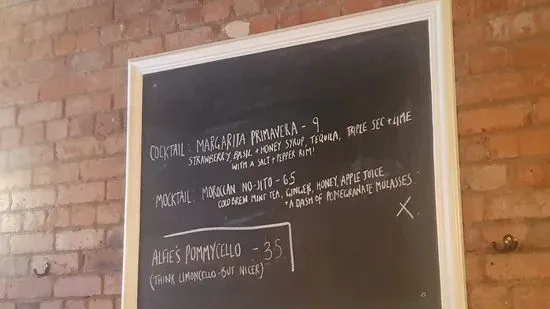 COCKTAIL: MARGARITA PRIMAVERA - 9
STRAWBERRY, BASIL + HONEY SYRUP, TEQUILA, TRIPLE SEC + LIME
WITH A SALT + PEPPER RIM!
MOCKTAIL: MOROCCAN NO-JITO - 6.5
COLD BREW MINT TEA, GINGER, HONEY, APPLE JUICE
+ A DASH OF POMEGRANATE MOLASSES.
X
ALFIE'S POMMYCELLO - 3.5
(THINK LIMONCELLO - BUT NICER)